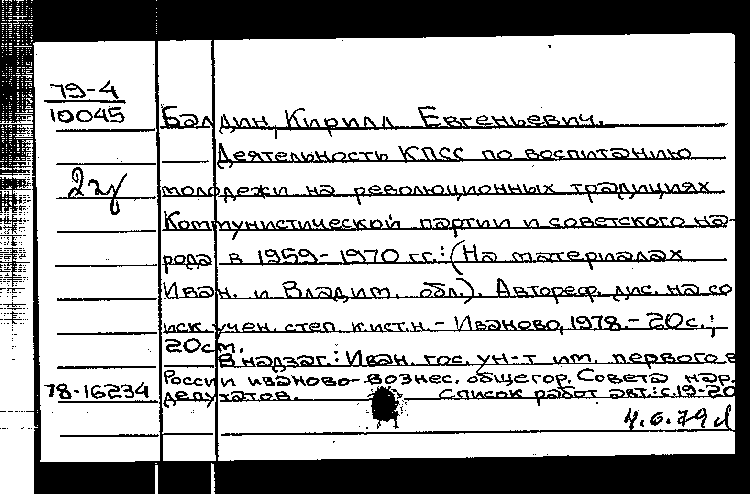 79-4
10045
Балдин, Кирилл Евгеньевич.
Деятельность КПСС по воспитанию
молодежи на революционных традициях
Коммунистической партии и советского на-
рода в 1959-1970 гг.: (На материалах
Иван. и Владим. обл.). Автореф. дис. на со
иск. учен. степ. к.ист.н. - Иваново, 1978. - 20с.;
20см.
В надзаг.: Иван. гос. ун-т им. первого в
России иваново-вознес. общегор. Совета нар.
депутатов. Список работ авт.: с.19-20
78-16234
4.6.79